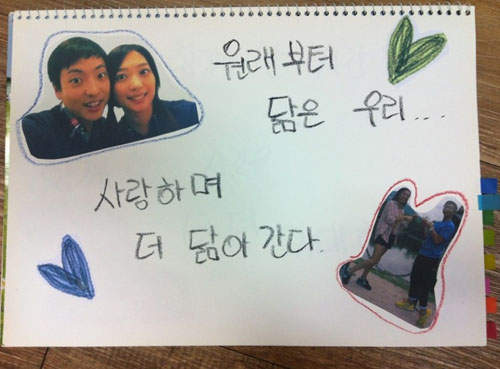 원래부터
닮은 우리...
사랑하며
더 닮아간다.